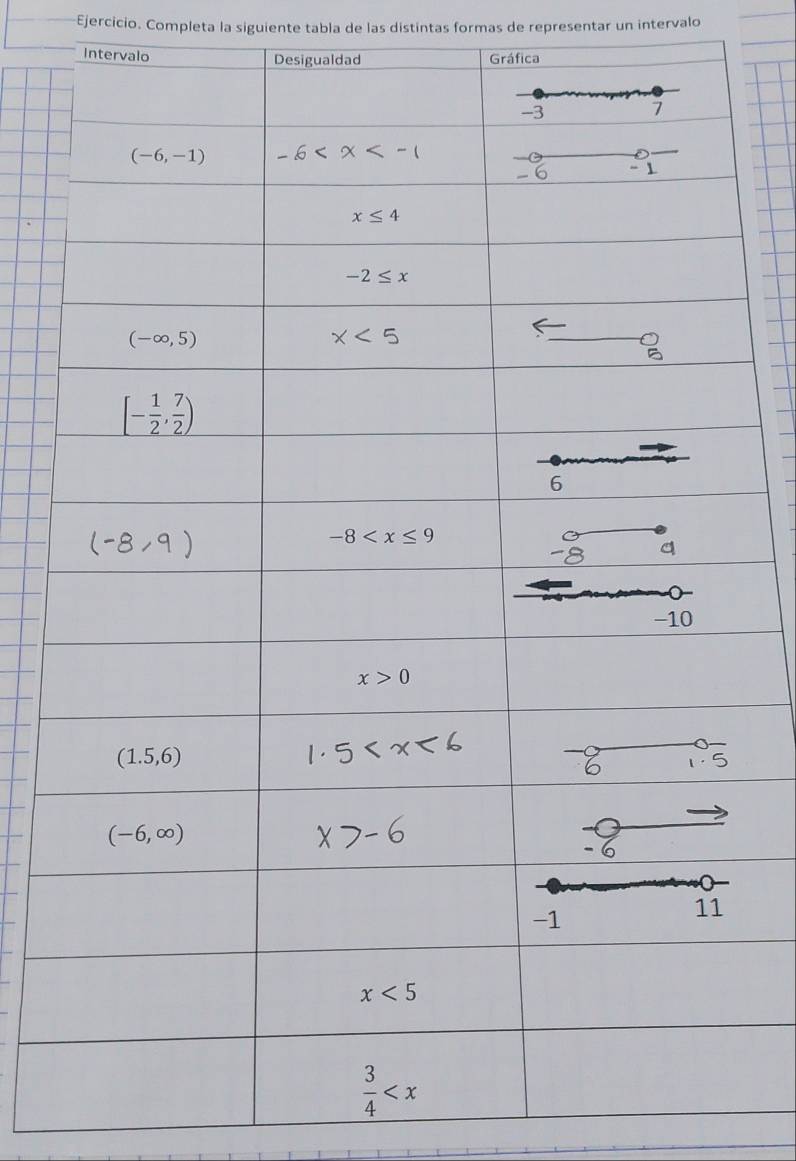 Ejercicio. Completa la siguiente tabla de las distintas formas de representar un intervalo
Intervalo Desigualdad Gráfica
-3 7
(-6, -1) -6 < x < -1 -6 -1
x ≤ 4
-2 ≤ x
(-∞, 5) x < 5 5
[-1/2, 7/2)
6
(-8, 9) -8 < x ≤ 9 -8 9
-10
x > 0
(1.5,6) 1.5 < x < 6 6 1.5
(-6, ∞) x > -6 -6
-1 11
x < 5
3/4 < x